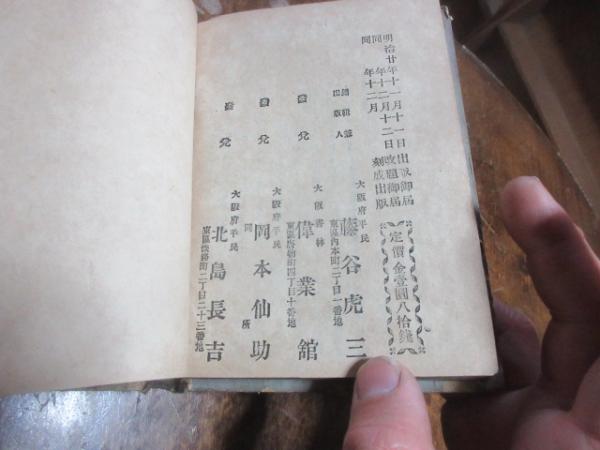 明治廿年十一月十一日出版御届
同年十二月十二日改題御届
同年十二月刻成出版
定價金壹圓八拾錢
編輯兼
出版人
大阪府平民
藤谷虎三
東區內本町二丁目一番地
發兌
大阪書林
偉業舘
東區唐物町四丁目十番地
發兌
大阪府平民
岡本仙助
同所
發兌
大阪府平民
北島長吉
東區淡路町二丁目二十三番地